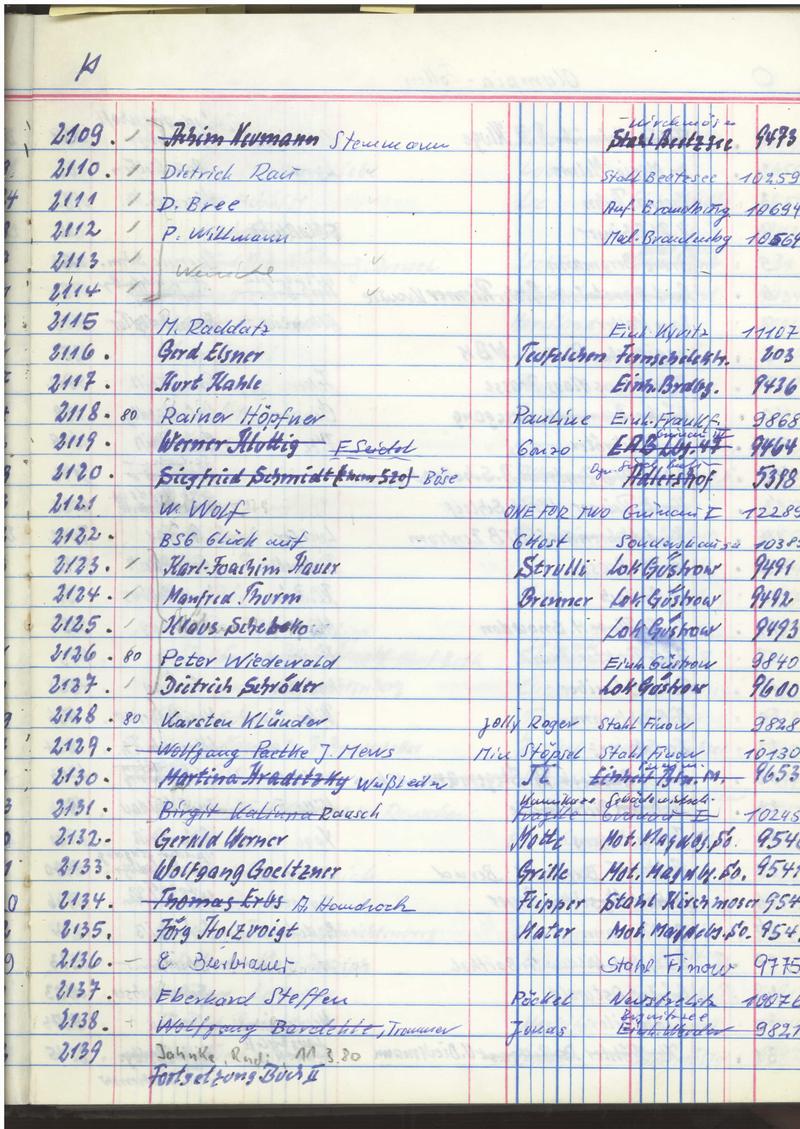 2109. Achim Neumann Stemmann Kirchmöser Stahl Beetzsee 9473
2110. Dietrich Rau Stahl Beetzsee 10259
2111 D. Bree Auf. Brandburg 10694
2112 P. Willmann Med. Brandenbg 10569
2113
2114
2115 M. Raddatz Einh. Kyritz 11107
2116. Gerd Elsner Teufelchen Fernmeldetechn. 203
2117. Kurt Kahle Einh. Brdbg. 9436
2118. 80 Rainer Höpfner Pauline Einh. Frankf. 9868
2119. Werner Kluttig F Seidel Gonzo 9464
2120. Siegfried Schmidt Böse Adlershof 5398
2121 W. Wolf ONE FOR TWO Grünau I 12289
2122. BSG Glück auf GHost Sondershausen 1038
2123. Karl-Joachim Hauer Strulli Lok Güstrow 9491
2124. Manfred Thurm Brenner Lok Güstrow 9492
2125. Klaus Schebeko Lok Güstrow 9493
2126 80 Peter Wiedewald Einh Güstrow 9840
2137. Dietrich Schröder Lok Güstrow 9600
2128. 80 Karsten Klünder Jolly Roger Stahl Finow 9828
2129. Wolfgang Paetke J. Mews Mix Stöpsel Stahl Finow 10130
2130. Martina Hradetzky 9653
2131. Birgit Kalinna Rausch Fragile Grünau I 10245
2132. Gerald Werner Motte Mot. Magdbg. So. 954
2133. Wolfgang Goeltzner Grille Mot. Magdbg. So. 954
2134. Thomas Erbs Flipper Stahl Kirchmöser 954
2135. Jörg Holzvoigt Mater Mot. Magdebg. So. 954
2136. E Bierbrauer Stahl Finow 9775
2137. Eberhard Steffen Päckel Neustrelitz 10076
2138. Trammer Jonas Einh. Werder 9821
2139 Jahnke Rudi 11.3.80
Fortsetzung Buch II